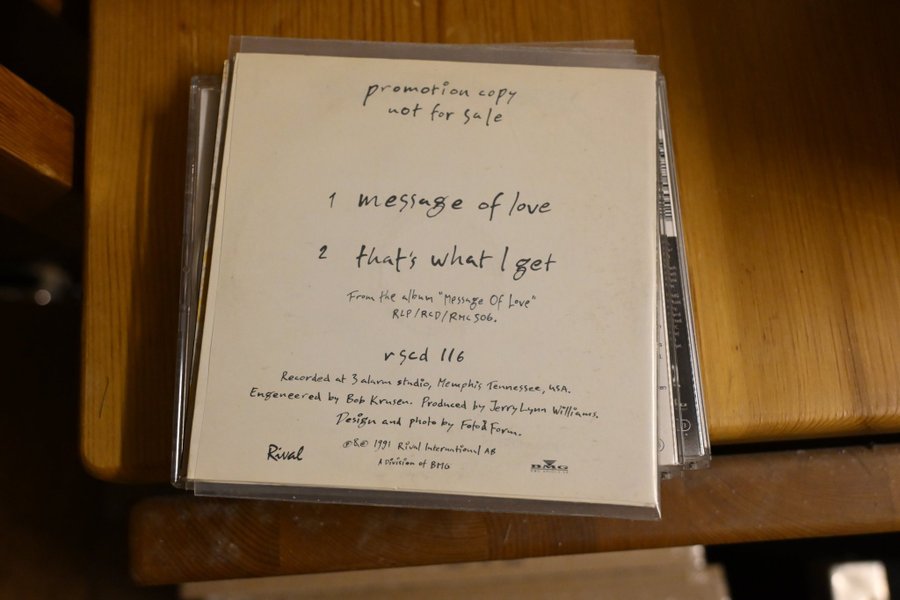 promotion copy
not for sale
1 message of love
2 that's what I get
From the album "Message Of Love"
RLP/RCD/RMC 506.
rscd 116
Recorded at 3 alarm studio, Memphis Tennessee, USA.
Engeneered by Bob Krusen. Produced by Jerry Lynn Williams.
Design and photo by Foto & Form.
℗&© 1991 Rival International AB
A Division of BMG
Rival
BMG